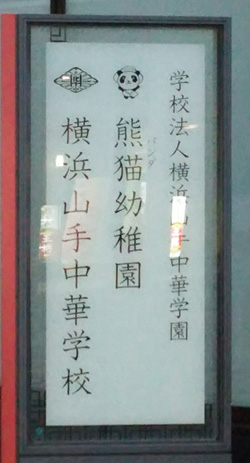 学校法人横浜山手中華学園
熊猫幼稚園
パンダ
横浜山手中華学校